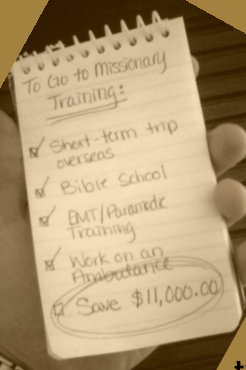 To Go to Missionary
Training:
Short-term trip
overseas
Bible School
EMT/Paramedic
Training
Work on an
Ambulance
Save $11,000.00